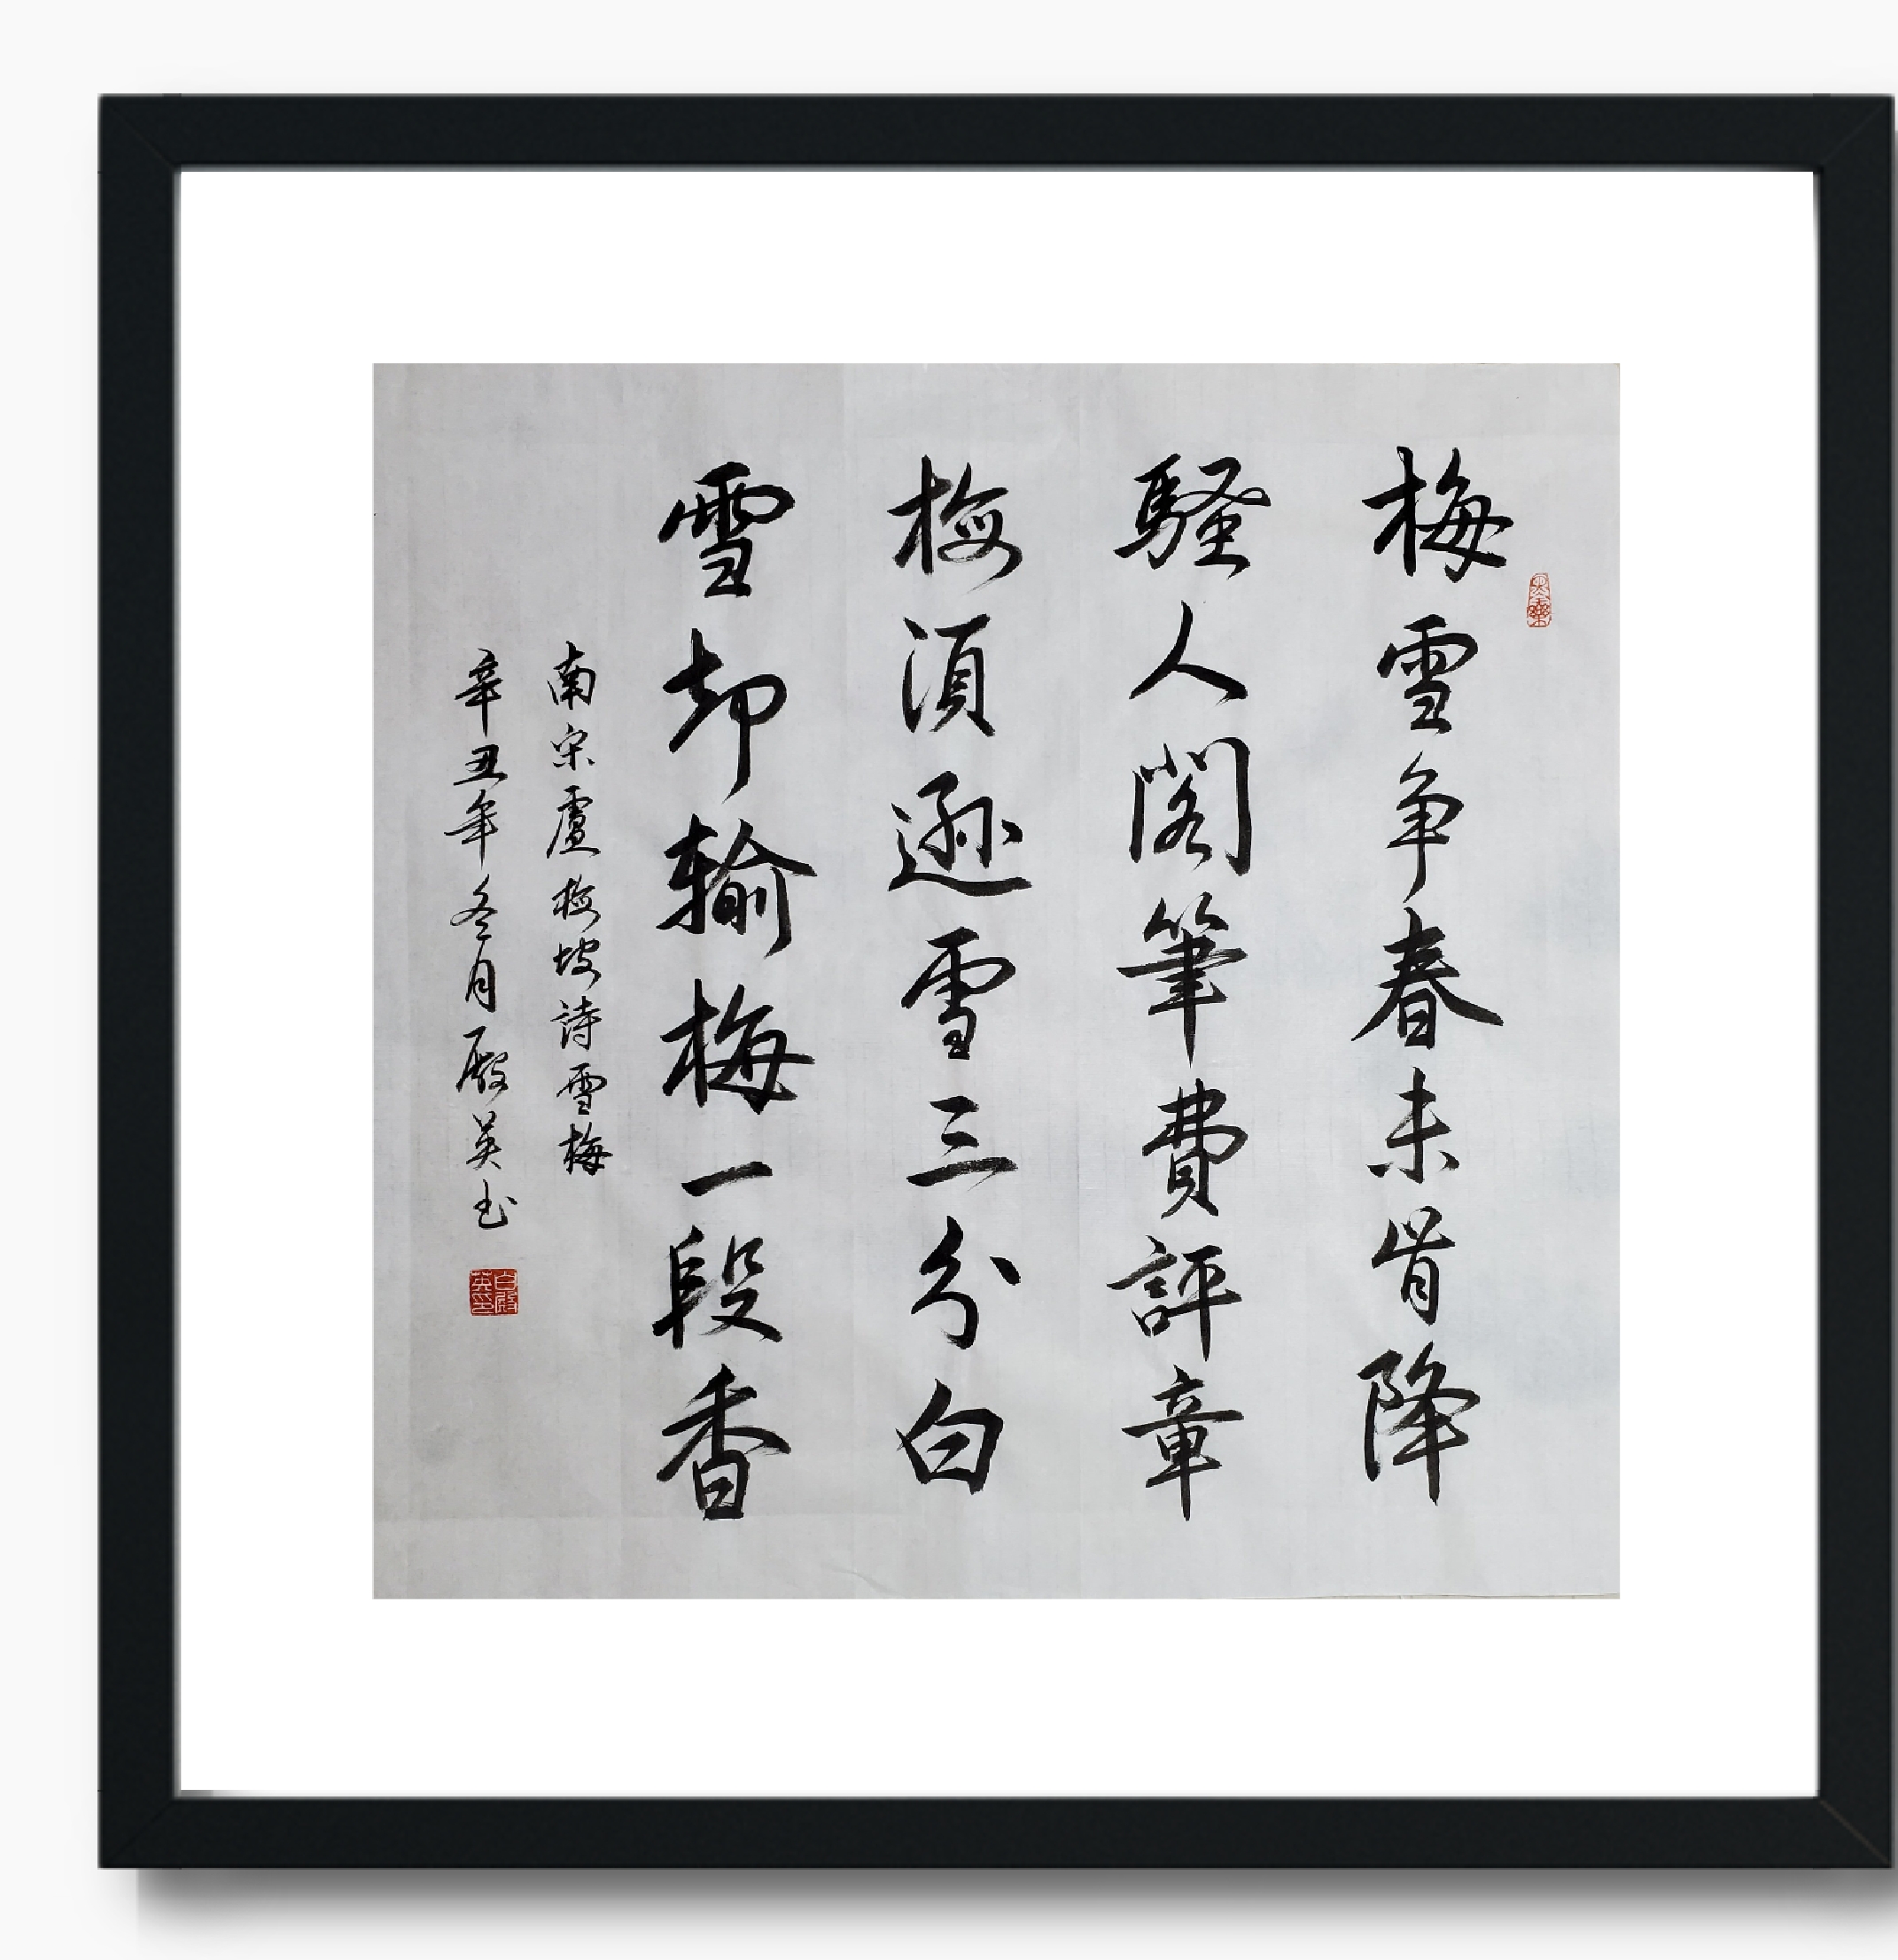 梅雪争春未肯降
騷人閣筆費評章
梅須遜雪三分白
雪却輸梅一段香
南宋盧梅坡詩雪梅
辛丑年冬月殿英书
白殿英印